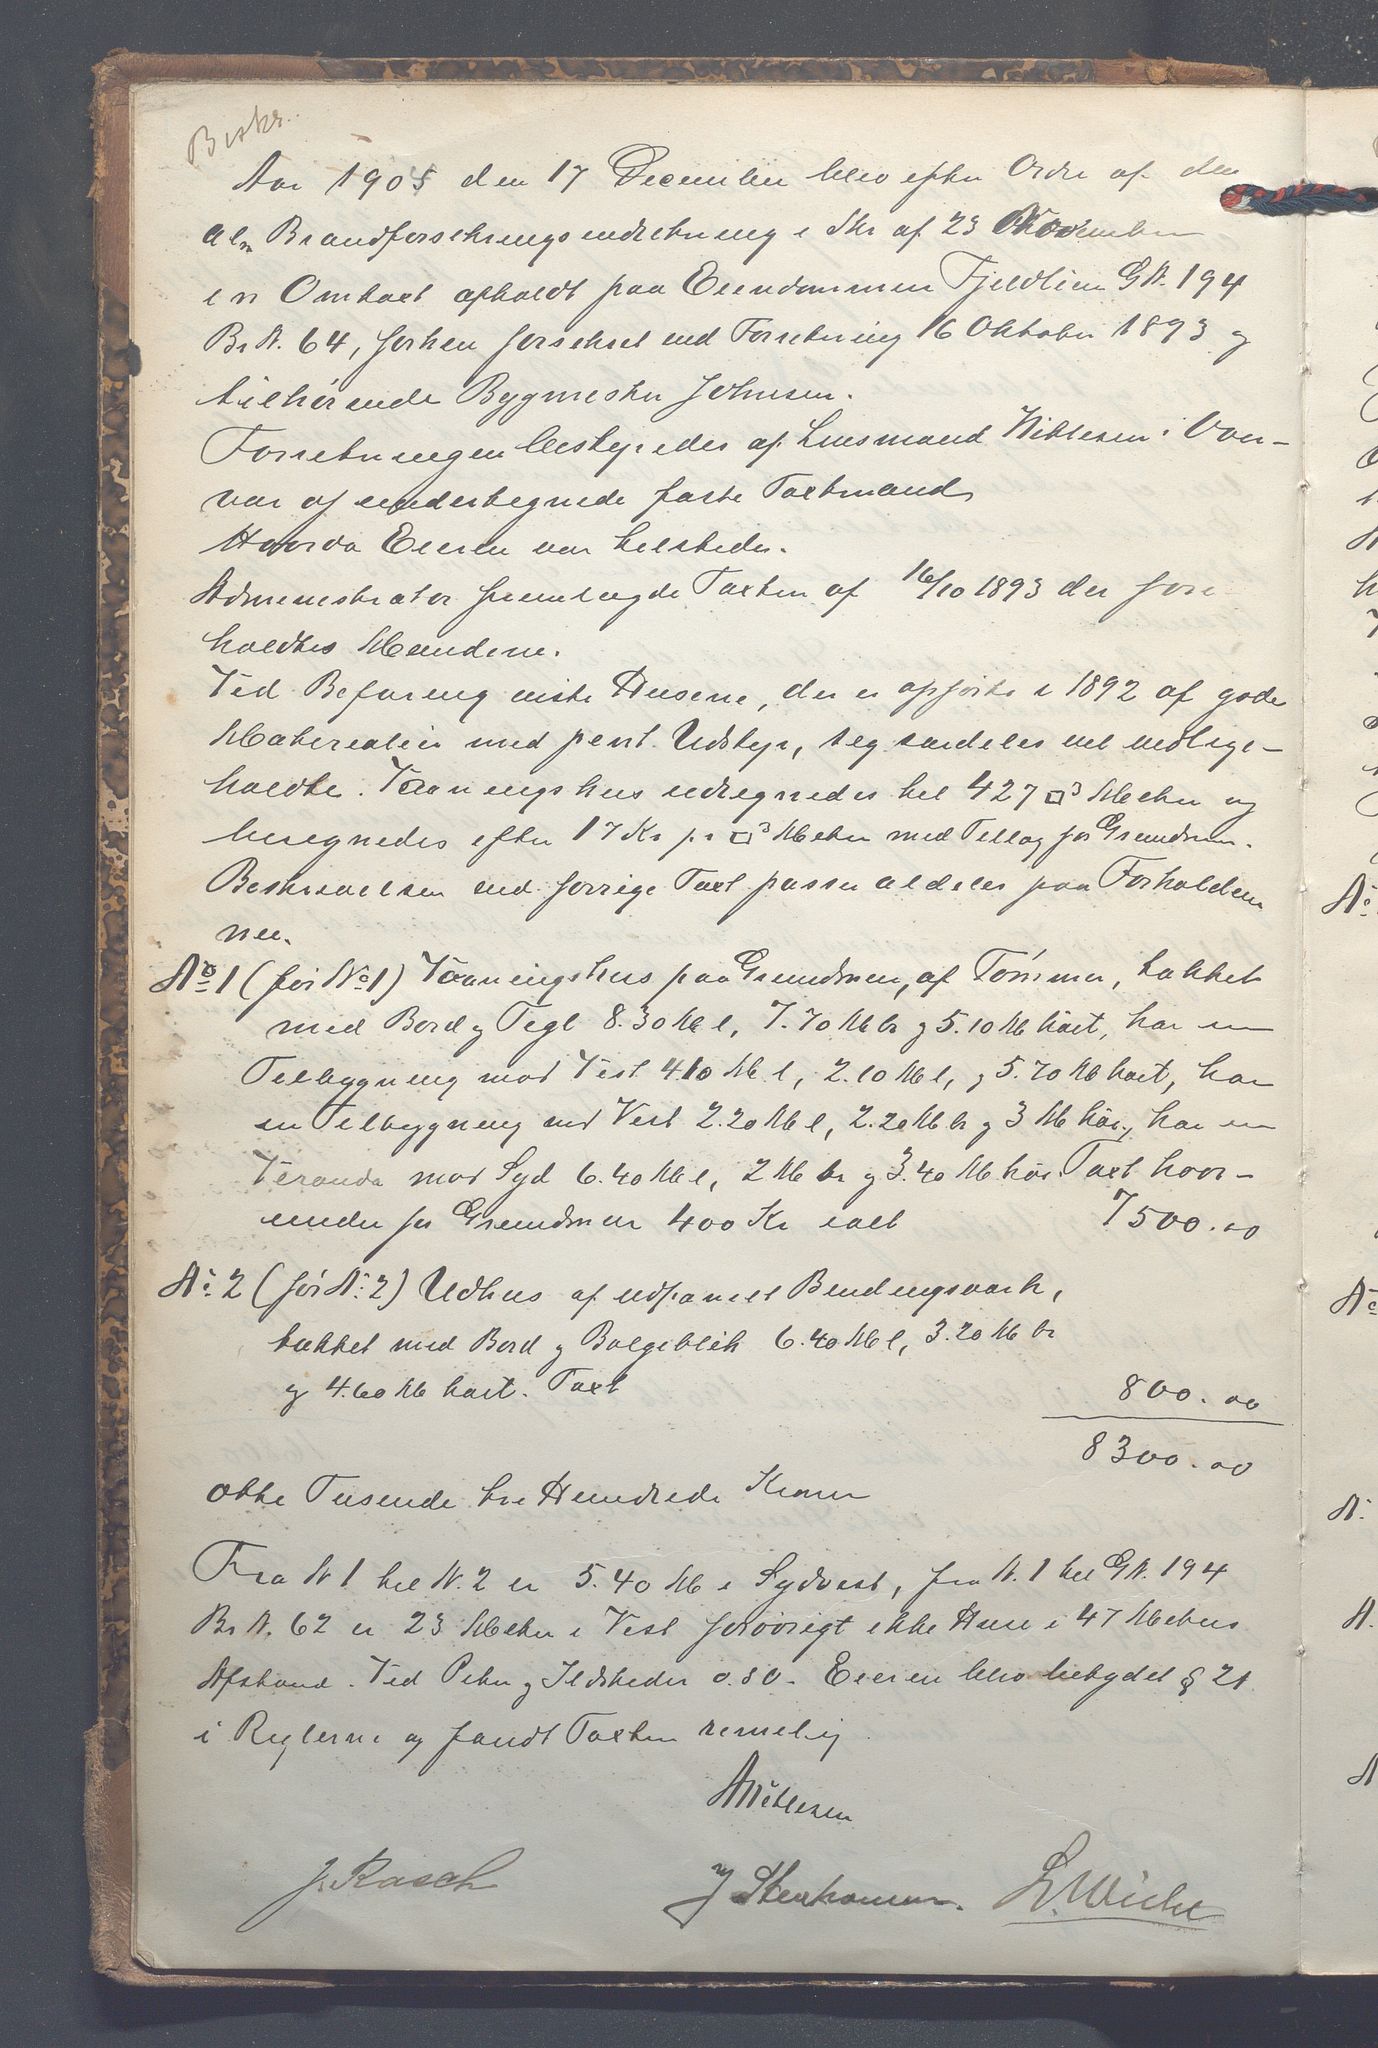 Beskr.
Aar 1905 den 17 December blev efter Ordre af den
alm Brandforsikringsindretning i Skr af 23 November
en Omtaxt afholdt paa Eiendommen Fjeldlien GN. 194
Br N. 64, forhen forsikret ved Forretning 16 Oktober 1893 og
tilhørende Bygmester Johnsen.
Forretningen bestyredes af Lensmand Nitlesen i Over-
vær af undertegnede faste Taxtmænd
Hvorva Eieren var tilstede.
Administrator fremlagde Taxten af 16/10 1893 der fore
holdtes Mændene.
Ved Befaring viste Husene, der er opførte i 1892 af gode
Materialier med pent Udstyr, seg særdeles vel vedlige-
holdte. Vaaningshus udregnedes til 427 □³ Meter og
beregnedes efter 17 Kr pr □³ Meter med Tillæg for Grundmur.
Beskrivelsen ved forrige Taxt passer aldeles paa Forholdene
nu.
No 1 (før No 1) Vaaningshus paa Grundmur, af Tømmer, takket
med Bord og Tegl 8.30 M l, 7.70 M br og 5.10 M høit, har en
Tilbygning mod Vest 4.10 M l, 2.10 M l, og 5.70 M høit, har
en Tilbygning mod Vest 2.20 M l, 2.20 M br og 3 M høi, har en
Veranda mod Syd 6.40 M l, 2 M br og 3.40 M høi. Taxt hvor-
under for Grundmur 400 Kr ialt 7500.00
No. 2 (før N. 2) Udhus af udpanelt Bindingsværk,
takket med Bord og Bølgeblik 6.40 M l, 3.20 M br
og 4.60 M høit. Taxt 800.00
8300.00
Otte Tusende tre Hundrede Kroner
Fra N 1 til N. 2 er 5.40 M i Sydvest, fra N. 1 til GN. 194
Br N. 62 er 23 Meter i Vest forøvrigt ikke Huse i 47 Meters
Afstand. Ved Piber og Ildsteder 0.80. Eieren blev betydet § 21
i Reglerne og fandt Taxten rimelig
A Nitlesen
J. Rasch
L. Wicke